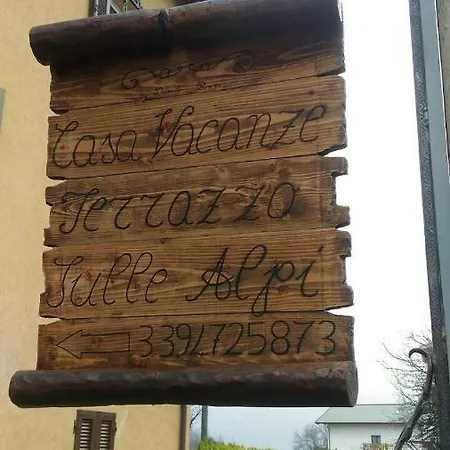 Casa Vacanze
Terrazzo
Sulle Alpi
3394725873